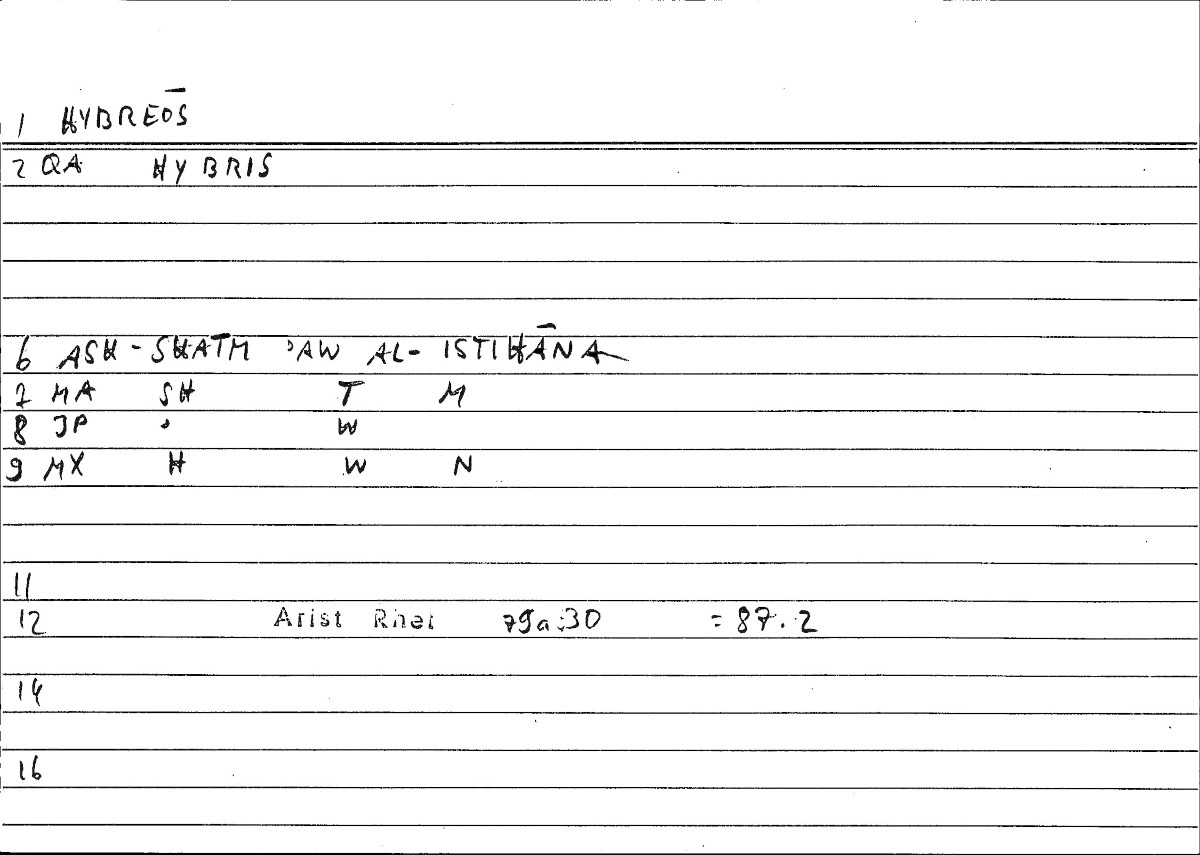 1 HYBREŌS
2 QA HYBRIS
6 ASH-SHATM ʾAW AL-ISTIHĀNA
7 MA SH T M
8 JP ʾ W
9 MX H W N
11
12 Arist Rhet 79a:30 = 87.2
14
16